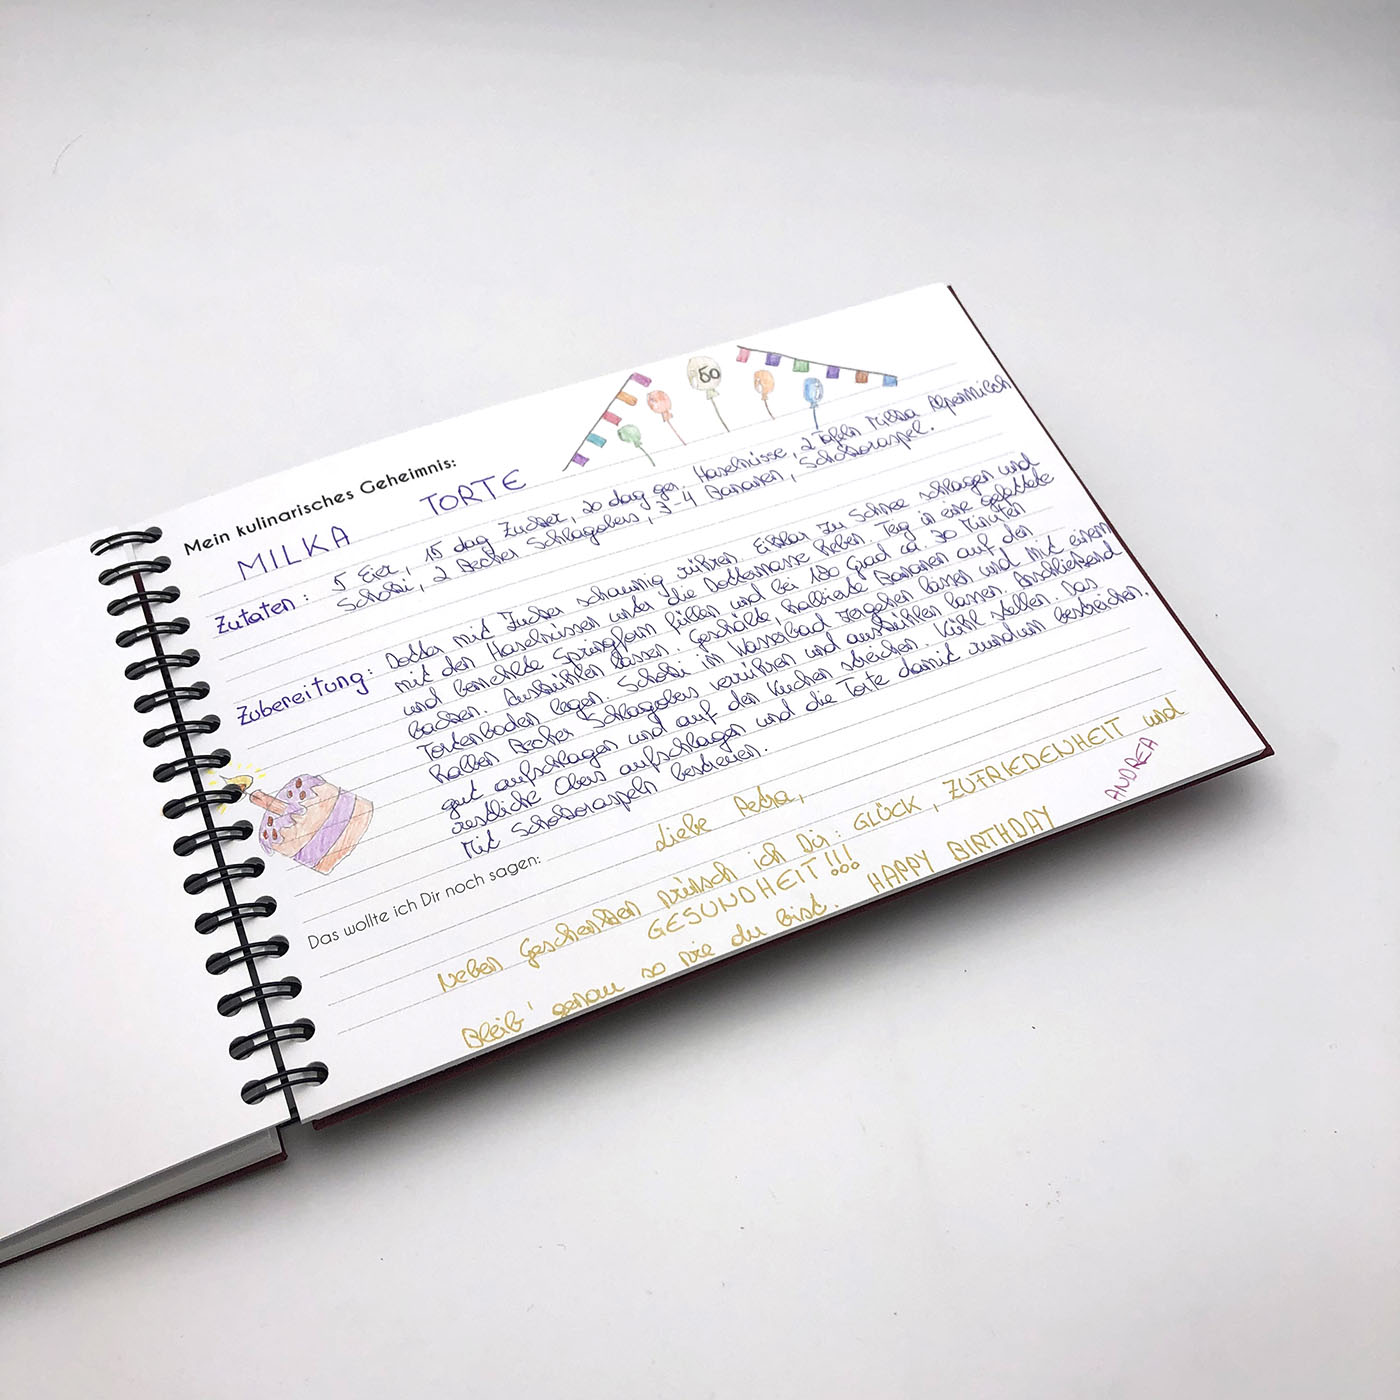 50
Mein kulinarisches Geheimnis:
MILKA TORTE
Zutaten: 5 Eier, 15 dag Zucker, 20 dag ger. Haselnüsse, 2 Tafeln Milka Alpenmilch
Schoki, 2 Becher Schlagobers, 3-4 Bananen, Schokoraspel.
Zubereitung: Dotter mit Zucker schaumig rühren. Eiklar zu Schnee schlagen und
mit den Haselnüssen unter die Dottermasse heben. Teig in eine gefettete
und bemehlte Springform füllen und bei 180 Grad ca. 30 Minuten
backen. Auskühlen lassen. Geschälte, halbierte Bananen auf den
Tortenboden legen. Schoki im Wasserbad zergehen lassen und mit einem
halben Becher Schlagobers verrühren und auskühlen lassen. Anschließend
gut aufschlagen und auf den Kuchen streichen. Kühl stellen. Das
restliche Obers aufschlagen und die Torte damit rundum bestreichen.
Mit Schokoraspeln bestreuen.
Das wollte ich Dir noch sagen:
Liebe Petra,
Neben Geschenken wünsch ich Dir: GLÜCK, ZUFRIEDENHEIT und
GESUNDHEIT!!!
Bleib' genau so wie du bist. HAPPY BIRTHDAY
ANDREA